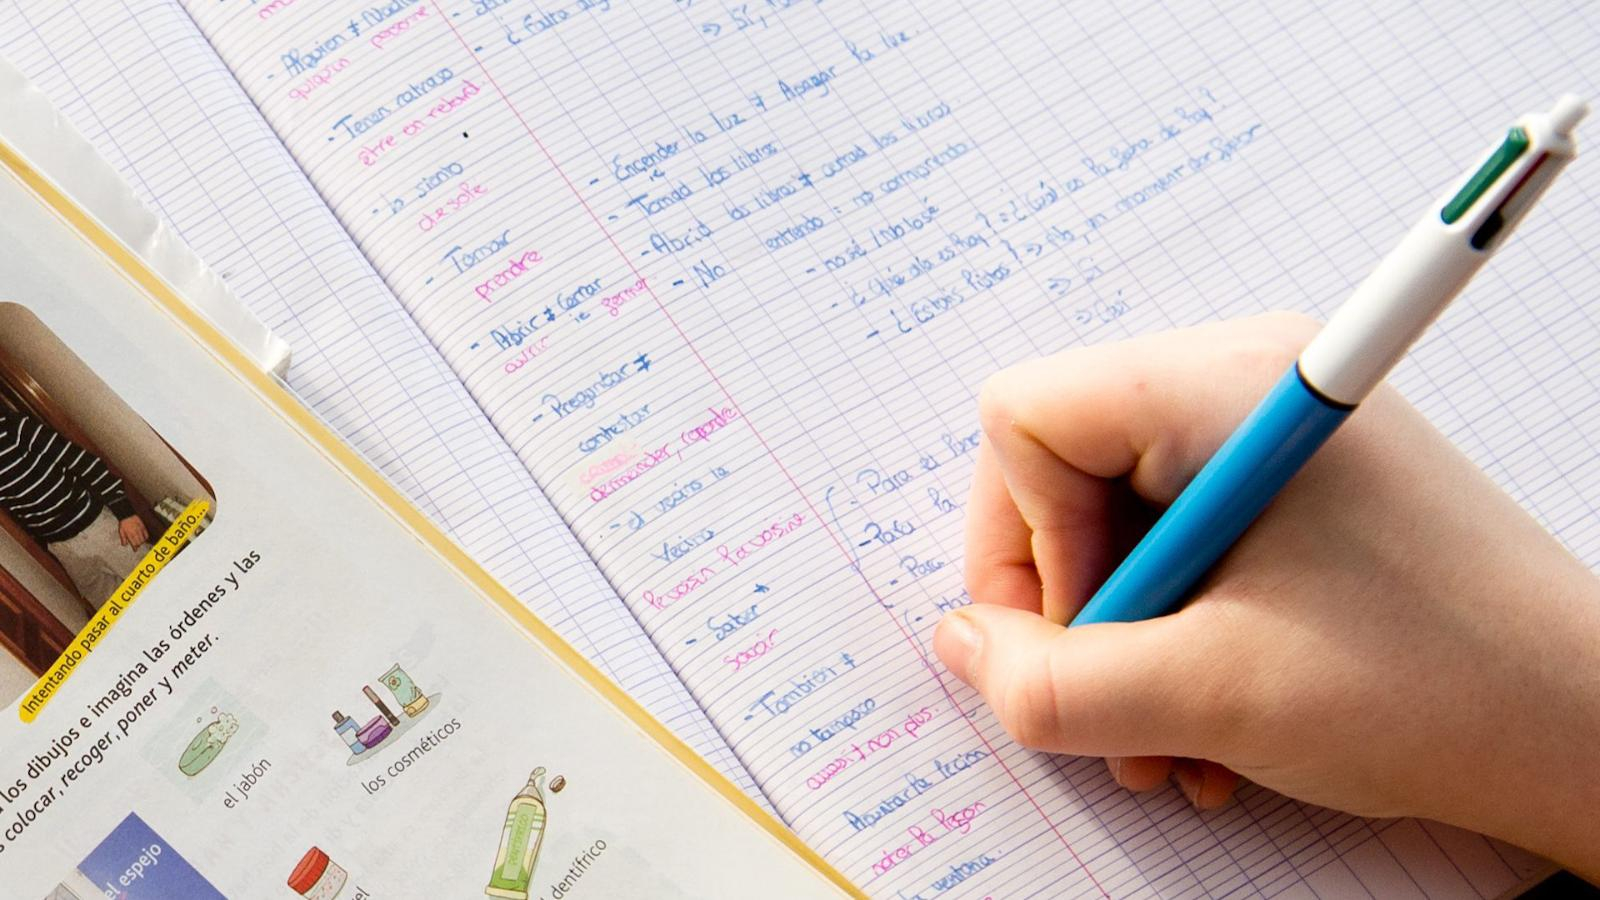 Intentando pasar al cuarto de baño...
los dibujos e imagina las órdenes y las
s colocar, recoger, poner y meter.
el jabón
los cosméticos
el espejo
el
dentífrico
DENTÍFRICO
- Alguien ≠ Nadie
quelqu'un personne
- Tener retraso
être en retard.
- lo siento
désolé
- Tomar
prendre
- Abrir ≠ Cerrar
ouvrir ie fermer
- Preguntar ≠
contestar
demander, répondre
- el vecino la
vecina
le voisin la voisine
- Saber *
savoir
- También ≠
no tampoco
aussi ≠ non plus.
Apuntar la lección
noter la leçon
la ventana.
- ¿ Falta
⇒ Sí,
- Encender la luz ≠ Apagar la luz.
ie
- Tomad los libros
- Abrid los libros ≠ cerrad los libros.
- No entiendo = no comprendo
- no sé / no lo sé
- ¿ Qué día es hoy ? = ¿ Cuál es la fecha de hoy ?
- ¿ Estáis listos ? ⇒ No, un momento por favor
⇒ Sí
⇒ Casi
- Para el
- Para la
- Para